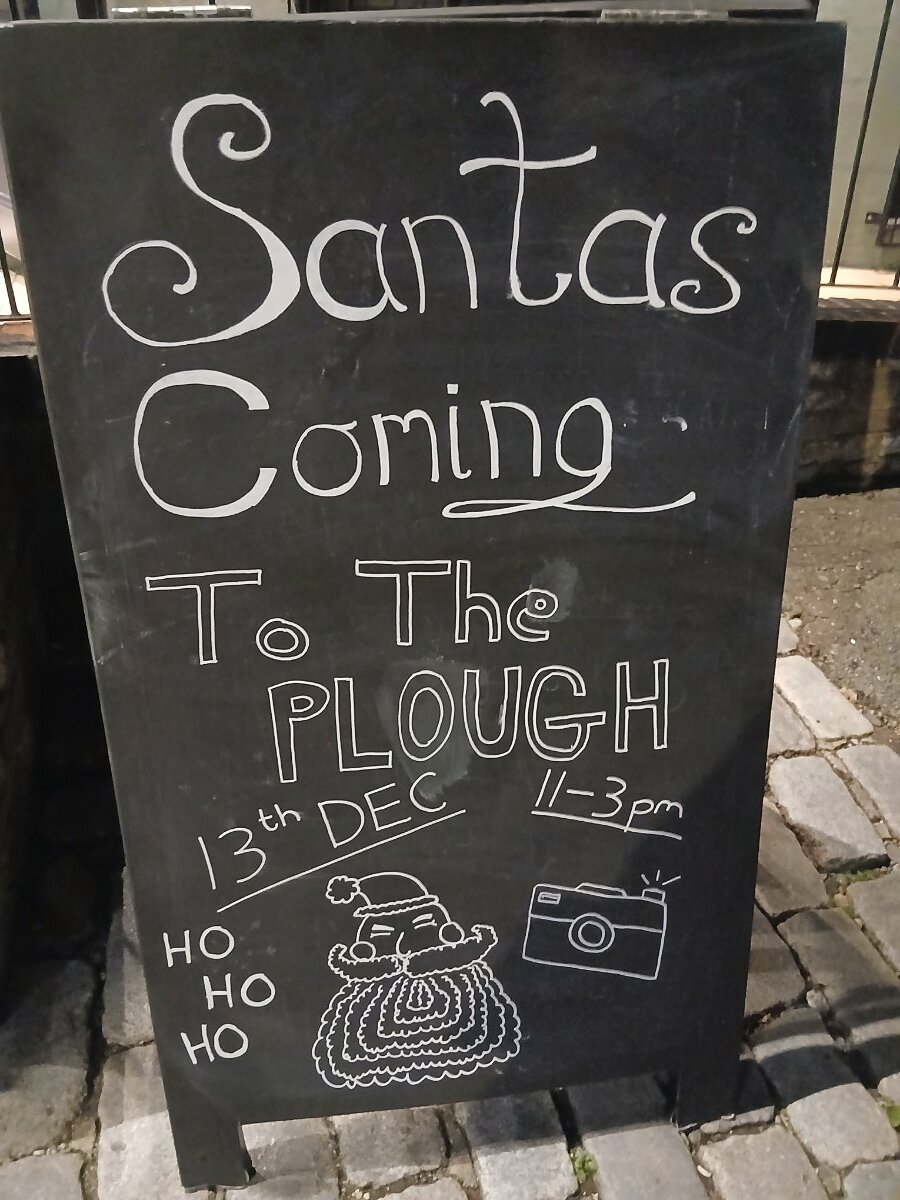 Santas
Coming
To The
PLOUGH
13th DEC
11-3pm
HO
HO
HO